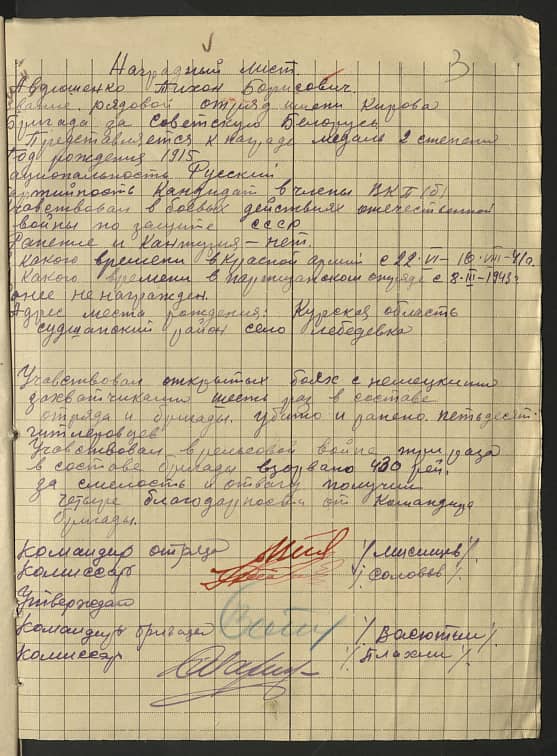 3
Наградный лист.
Авдюшенко Тихон Борисович.
звание рядовой отряд имени Кирова
бригада за Советскую Белорусь
Представляется к награде медаль 2 степени
Год рождения 1915
ациональность Русский
артийность Кандидат в члены ВКП(б)
Учавствовал в боевых действиях отечественной
войны по защите СССР
Ранение и Контузия – нет.
С какого времени в Красной армии с 22-VI – 10-VIII-41г.
С какого времени в партизанском отряде с 8-III-1943г.
анее не награжден.
Адрес места рождения: Курская область
судшанский район село Лебедевка
Учавствовал открытых боях с немецкими
захватчиками шесть раз в составе
отряда и бригады. убито и ранено петьдесят
гитлеровцев
Учавствовал в рельсовой войне три раза
в составе бригады взорвано 430 рей.
за смелость и отвагу получил
четыре благодарности от Командира
бригады.
Командир отряда /Мисников/.
Комиссар /Соловьев/.
Утверждаю
Командир бригады /Васютин/.
Комиссар /Плахин/.